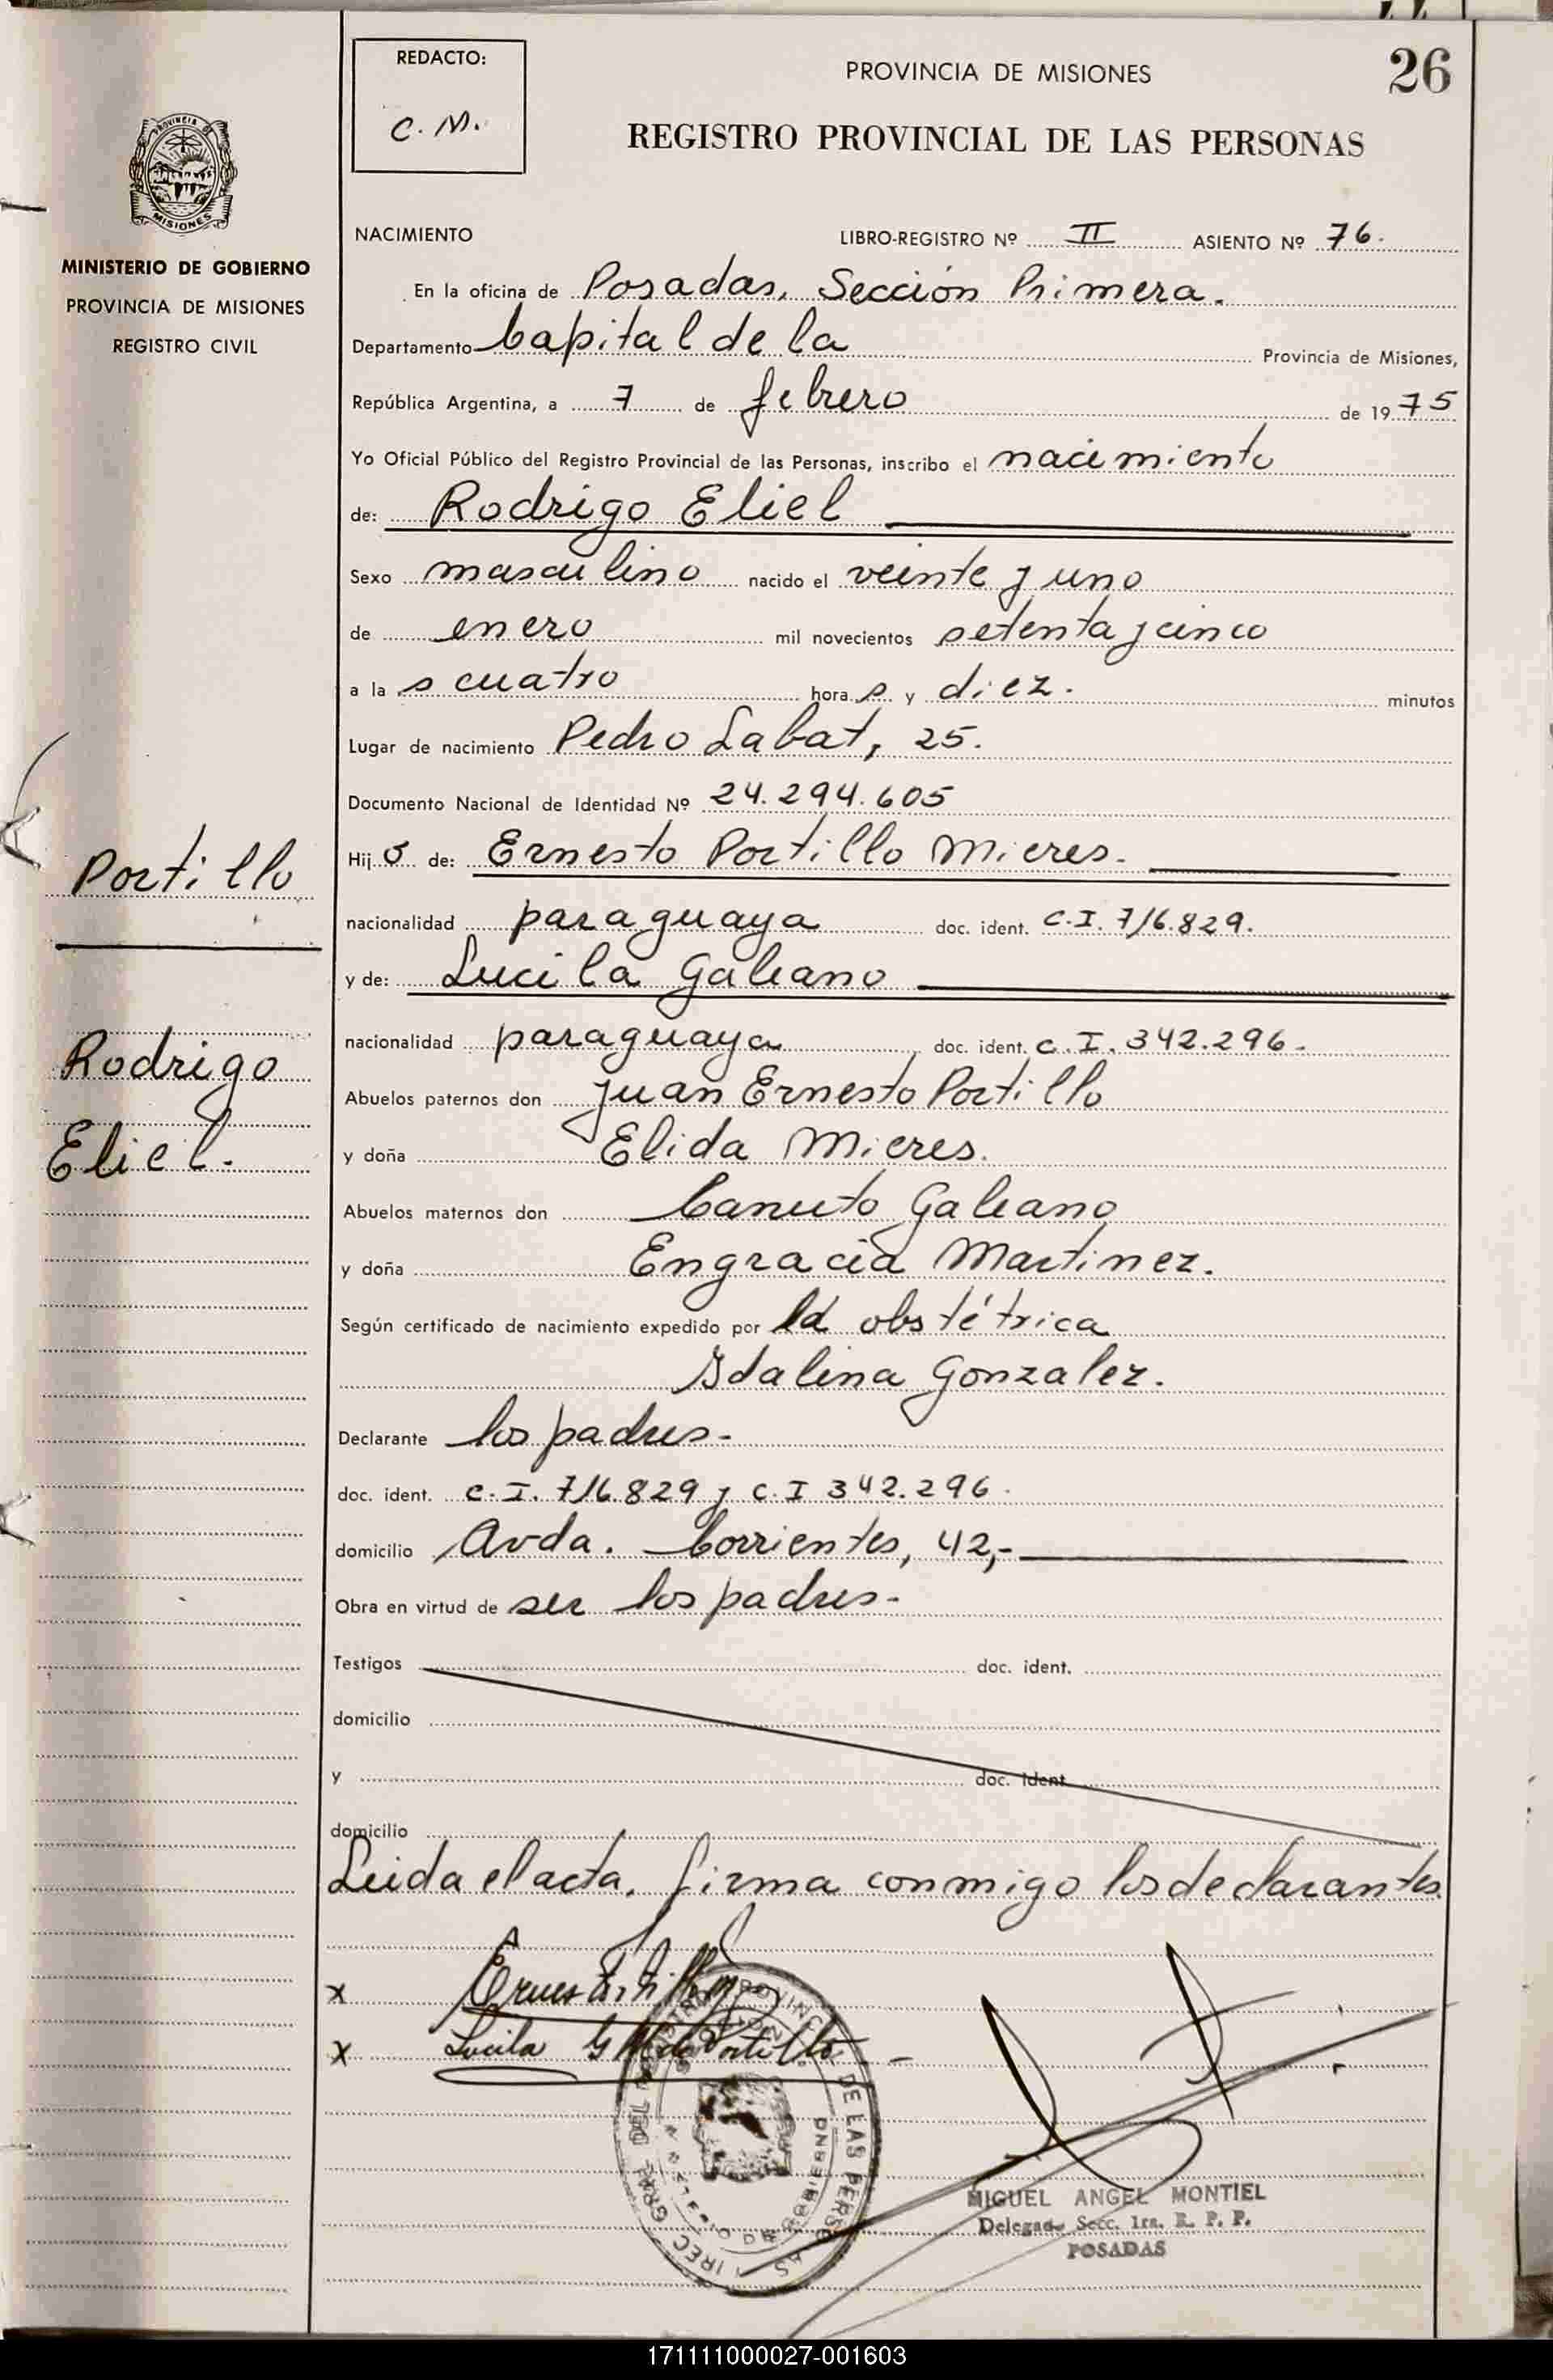 26
REDACTO:
C. M.
PROVINCIA DE MISIONES
REGISTRO PROVINCIAL DE LAS PERSONAS
PROVINCIA DE
MISIONES
MINISTERIO DE GOBIERNO
PROVINCIA DE MISIONES
REGISTRO CIVIL
NACIMIENTO LIBRO-REGISTRO Nº II ASIENTO Nº 76.
En la oficina de Posadas, Sección Primera.
Departamento Capital de la Provincia de Misiones,
República Argentina, a 7 de febrero de 1975
Yo Oficial Público del Registro Provincial de las Personas, inscribo el nacimiento
de: Rodrigo Eliel
Sexo masculino nacido el veinte y uno
de enero mil novecientos setenta y cinco
a la s cuatro hora s y diez. minutos
Lugar de nacimiento Pedro Labat, 25.
Documento Nacional de Identidad Nº 24.294.605
Hij o de: Ernesto Portillo Mieres.
nacionalidad paraguaya doc. ident. C.I. 716.829.
y de: Lucila Galeano
nacionalidad paraguaya doc. ident. C.I. 342.296.
Abuelos paternos don Juan Ernesto Portillo
y doña Elida Mieres.
Abuelos maternos don Canuto Galeano
y doña Engracia Martinez.
Según certificado de nacimiento expedido por la obstétrica
Idalina Gonzalez.
Declarante los padres.
doc. ident. C.I. 716.829 y C.I 342.296.
domicilio Avda. Corrientes, 42,-
Obra en virtud de ser los padres.
Testigos doc. ident.
domicilio
y doc. ident.
domicilio
Leida el acta, firma conmigo los declarantes
Portillo
Rodrigo
Eliel.
x
x Lucila G de Portillo
DE LAS PERSONAS
MIGUEL ANGEL MONTIEL
Delegado Secc. 1ra. R. P. P.
POSADAS
171111000027-001603